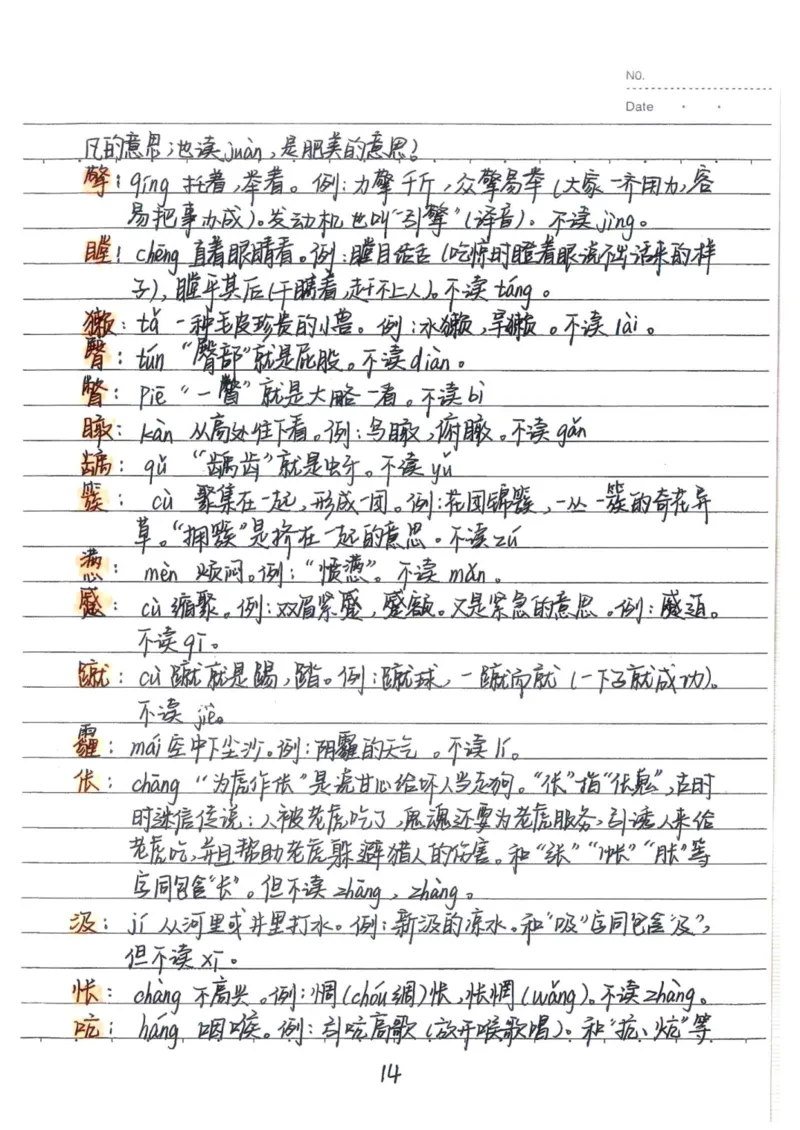 NO.
Date
凡的意思；也读juàn，是肥美的意思？
擎：qíng 托着，举着。例：力擎千斤，众擎易举（大家一齐用力，容
易把事办成）。发动机也叫“引擎”（译音）。不读jìng。
瞠：chēng 直着眼睛看。例：瞠目结舌（吃惊时瞪着眼说不出话来的样
子），瞠乎其后（干瞒着，赶不上人）。不读táng。
獭：tǎ 一种毛皮珍贵的小兽。例：水獭，旱獭。不读lài。
臀：tún “臀部”就是屁股。不读diàn。
瞥：piē “一瞥”就是大略一看。不读bì
瞰：kàn 从高处往下看。例：鸟瞰，俯瞰。不读gǎn
龋：qǔ “龋齿”就是虫牙。不读yǔ
簇：cù 聚集在一起，形成一团。例：花团锦簇，一丛一簇的奇花异
草。“拥簇”是挤在一起的意思。不读zú
懑：mèn 烦闷。例：“愤懑”。不读mǎn。
蹙：cù 缩聚。例：双眉紧蹙，蹙额。又是紧急的意思。例：蹙迫。
不读qī。
蹴：cù 蹴就是踢，踏。例：蹴球，一蹴而就（一下子就成功）。
不读jiù。
霾：mái 空中下尘沙。例：阴霾的天气。不读lí。
伥：chāng “为虎作伥”是说甘心给坏人当走狗。“伥”指“伥鬼”，古时
时迷信传说：人被老虎吃了，鬼魂还要为老虎服务，引诱人来给
老虎吃，并且帮助老虎躲避猎人的伤害。和“张”“帐”“胀”等
字同包含“长”。但不读zhāng，zhàng。
汲：jí 从河里或井里打水。例：新汲的凉水。和“吸”字同包含“及”，
但不读xī。
怅：chàng 不高兴。例：惆（chóu绸）怅，怅惘（wǎng）。不读zhàng。
吭：háng 咽喉。例：引吭高歌（放开喉歌唱）。和“抗、炕”等
14